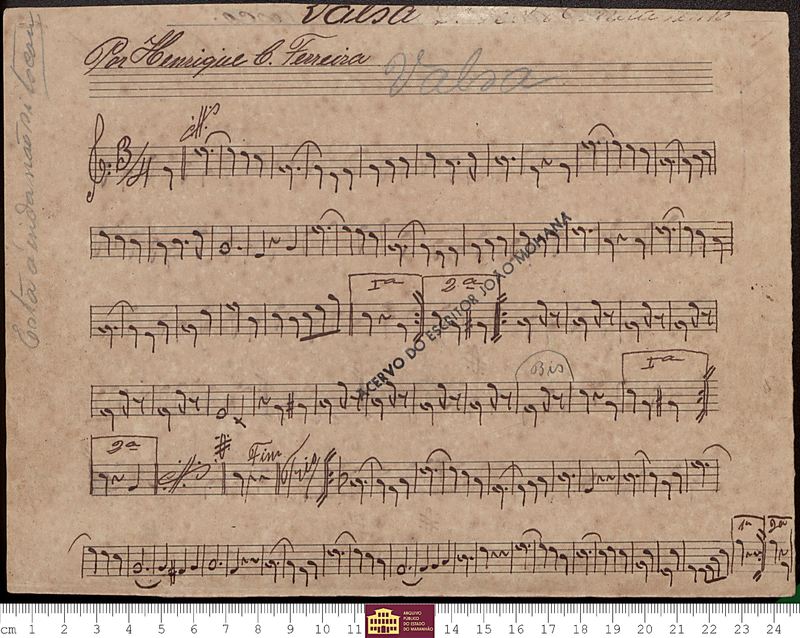 Valsa
Por Henrique C. Ferreira
Valsa
3/4
Iª 2ª
Bis Iª
2ª Fim Trio
1ª 2ª
ACERVO DO ESCRITOR JOÃO MOHANA
cm 1 2 3 4 5 6 7 8 9 10 11 14 15 16 17 18 19 20 21 22 23 24
ARQUIVO
PÚBLICO
DO ESTADO
DO MARANHÃO